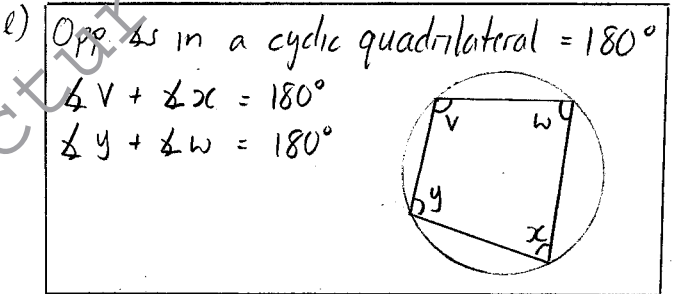 e) Opp. ∡s in a cyclic quadrilateral = 180°
∡V + ∡x = 180°
∡y + ∡w = 180°
V
w
y
x